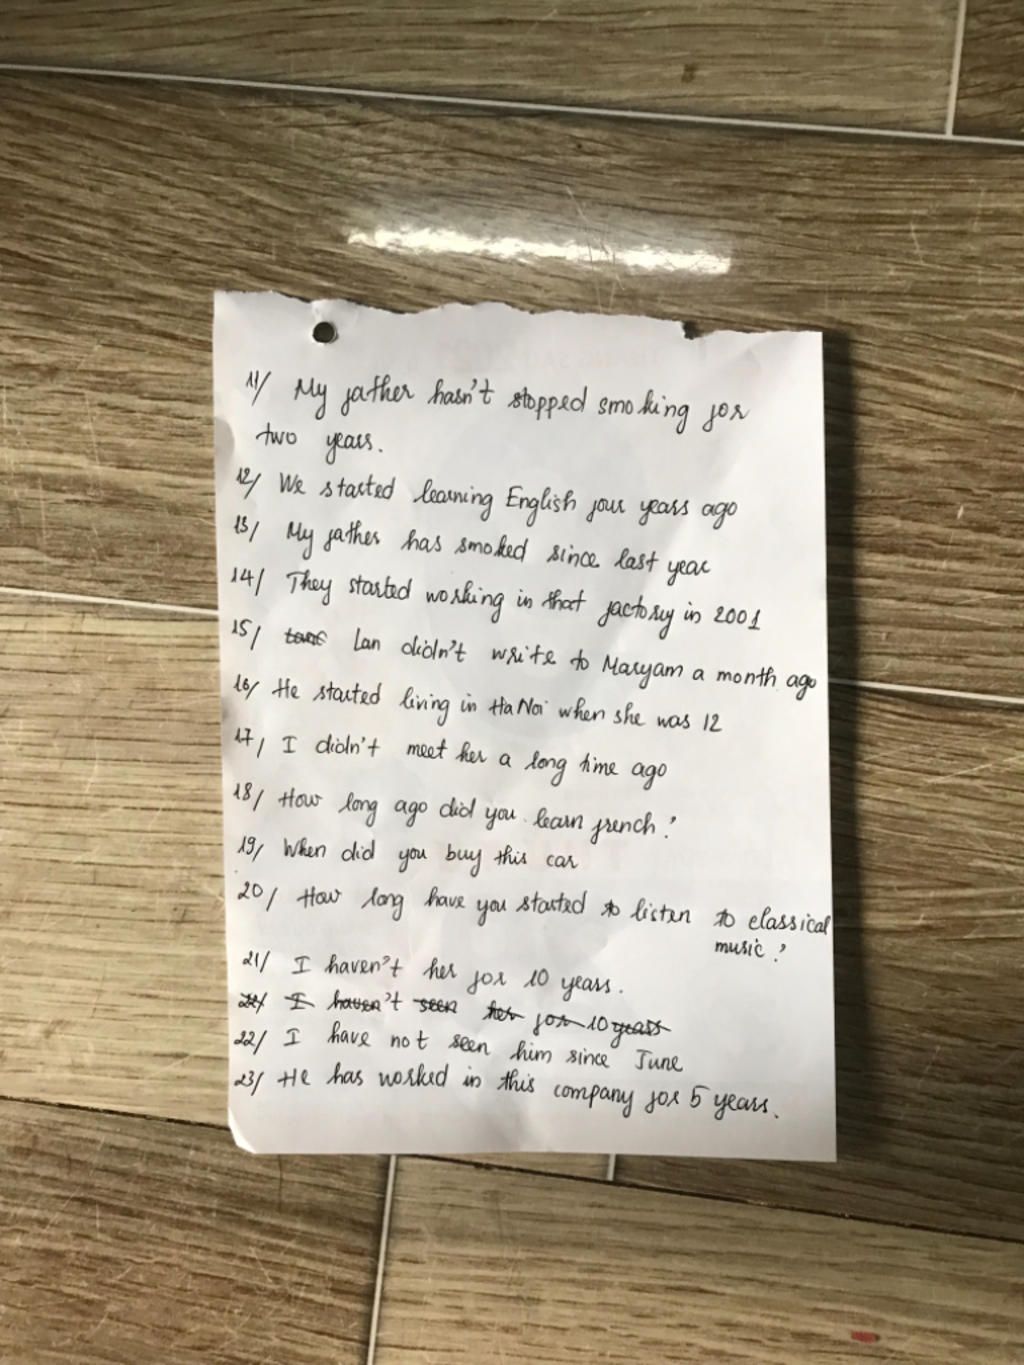 11/ My father hasn't stopped smoking for
two years.
12/ We started learning English four years ago
13/ My father has smoked since last year
14/ They started working in that factory in 2001
15/ Lan didn't write to Maryam a month ago
16/ He started living in Ha Noi when she was 12
17/ I didn't meet her a long time ago
18/ How long ago did you learn french?
19/ When did you buy this car
20/ How long have you started to listen to classical
music?
21/ I haven't her for 10 years.
22/ I haven't seen her for 10 years
22/ I have not seen him since June
23/ He has worked in this company for 5 years.